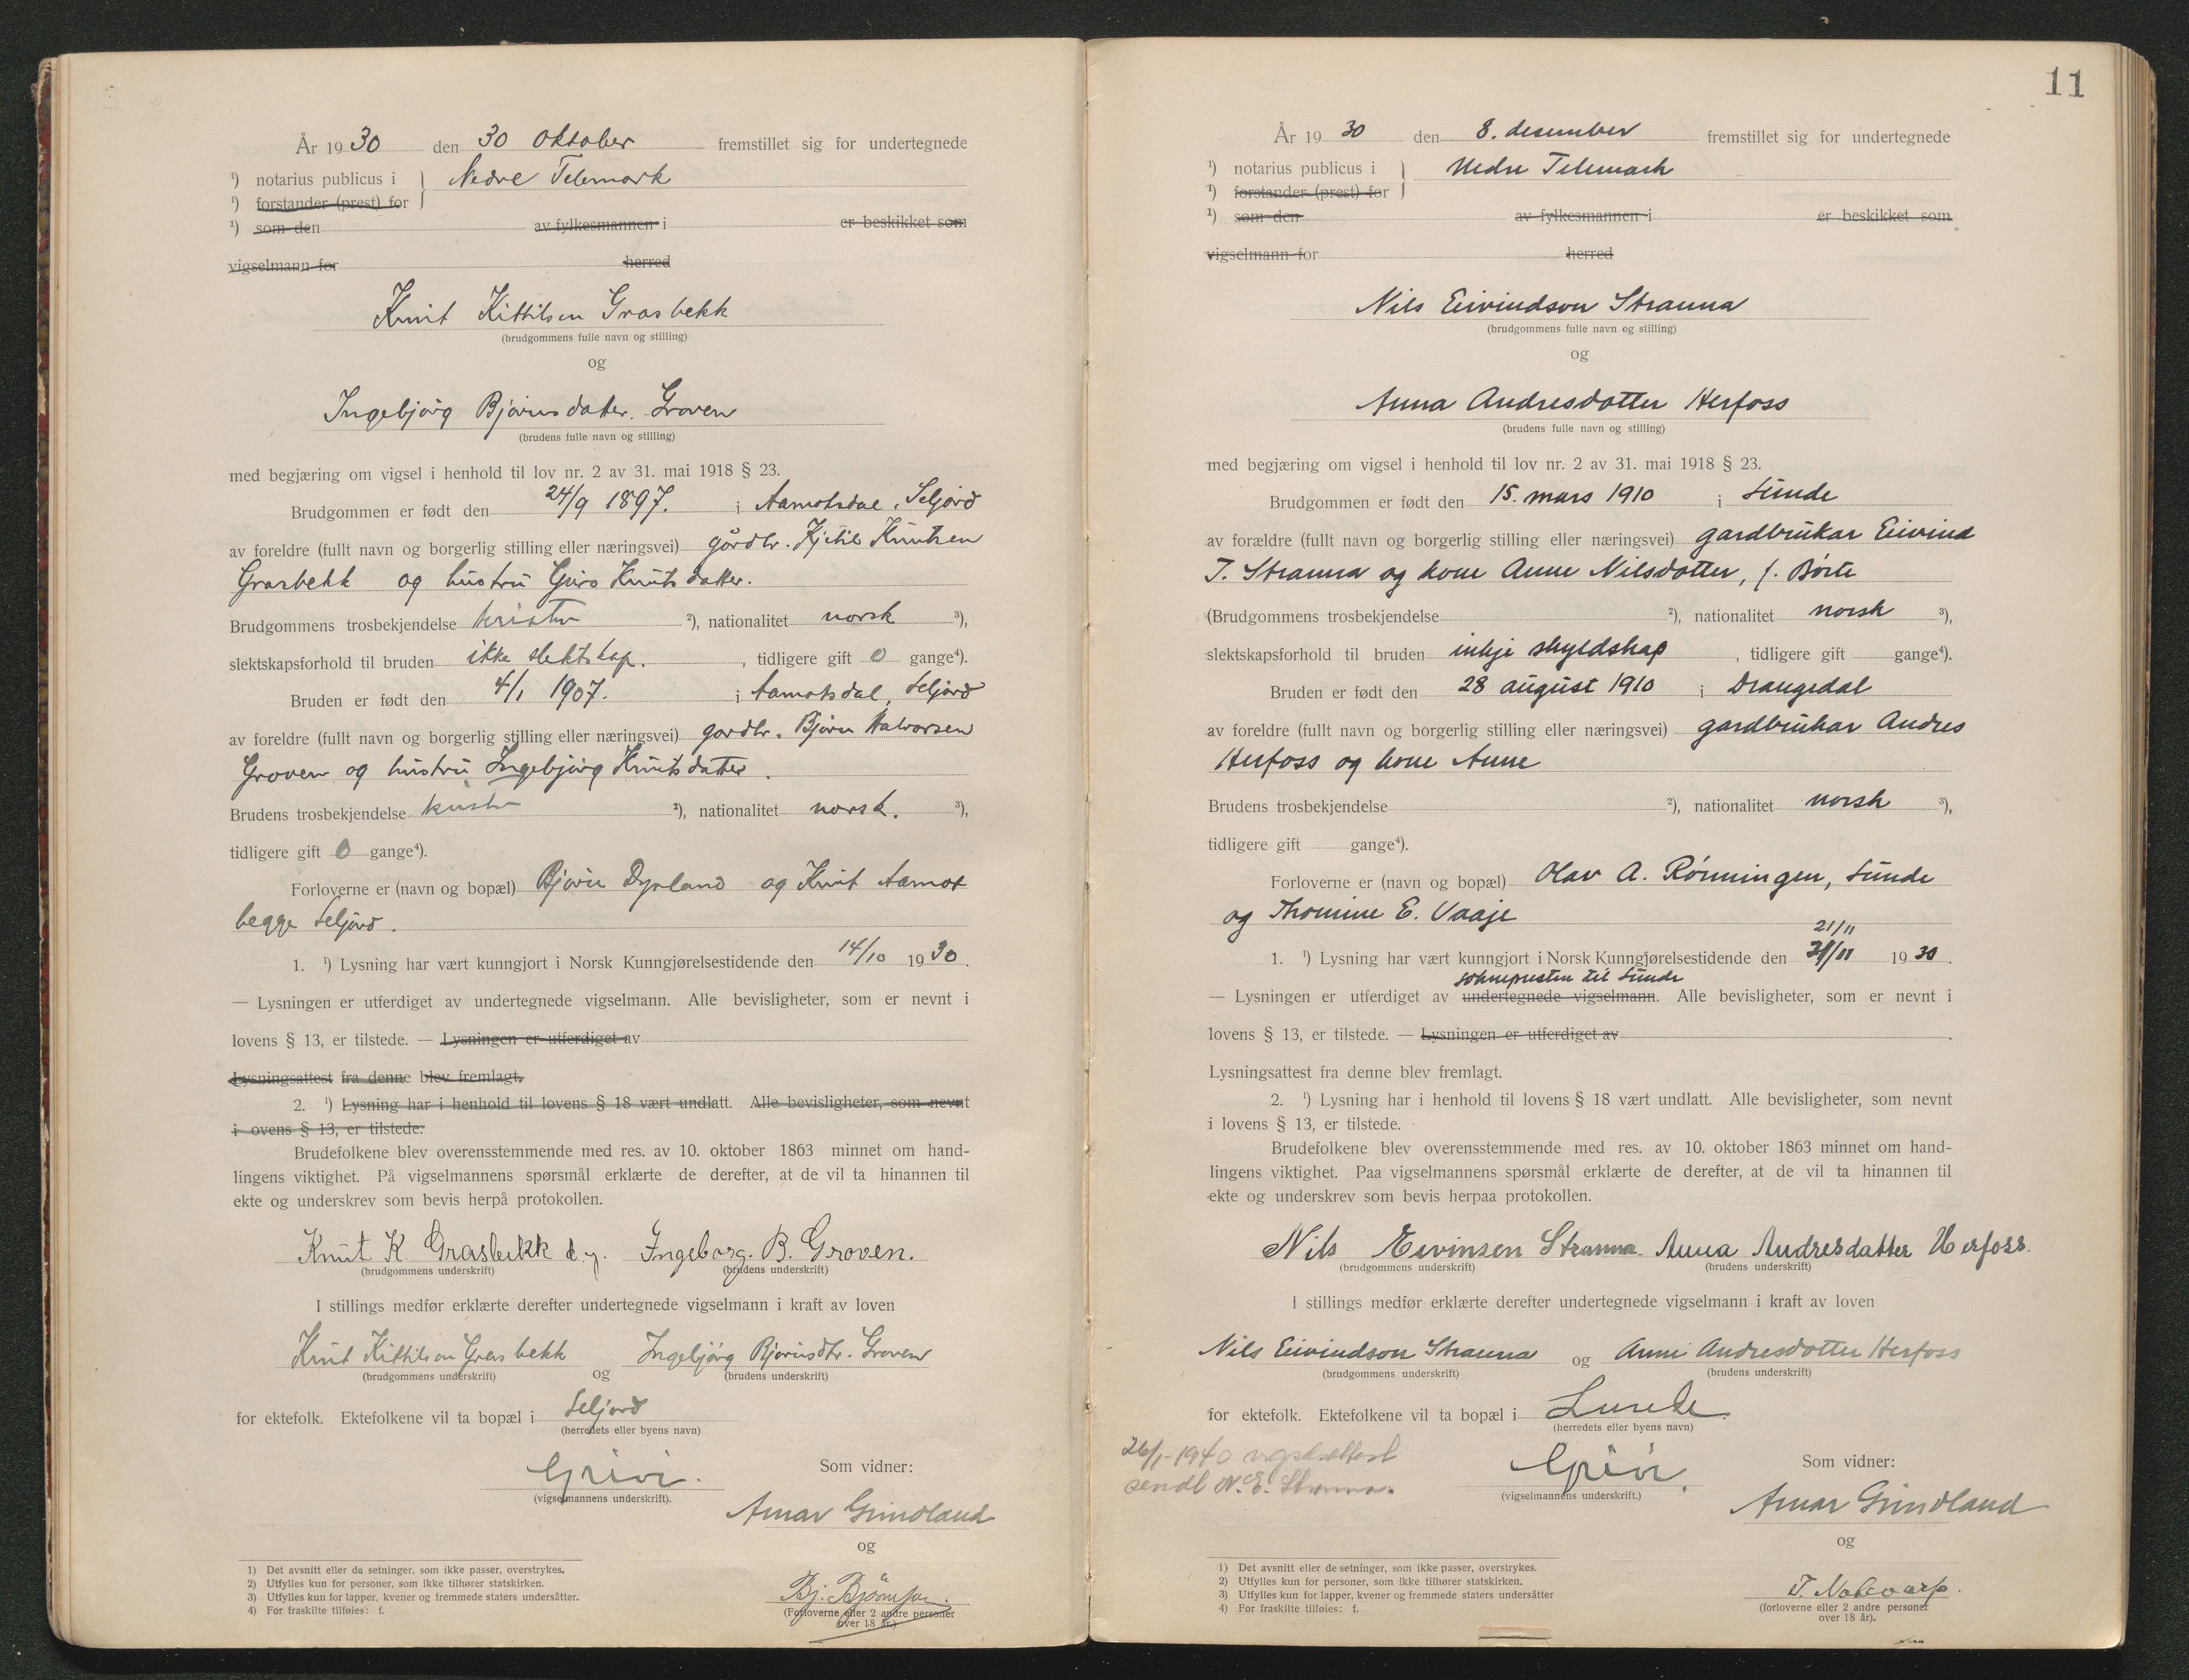 År 1930 den 30 Oktober fremstillet sig for undertegnede
¹) notarius publicus i } Nedre Telemark
¹) forstander (prest) for
¹) som den av fylkesmannen i er beskikket som
vigselmann for herred
Knut Kittilsen Grasbekk
(brudgommens fulle navn og stilling)
og
Ingebjörg Bjørnsdatter Groven
(brudens fulle navn og stilling)
med begjæring om vigsel i henhold til lov nr. 2 av 31. mai 1918 § 23.
Brudgommen er født den 24/9 1897. i Aamotsdal, Seljord
av foreldre (fullt navn og borgerlig stilling eller næringsvei) gårdbr. Kjetil Knutsen
Grasbekk og hustru Guro Knutsdatter.
Brudgommens trosbekjendelse kristen ²), nationalitet norsk ³),
slektskapsforhold til bruden ikke slektskap. , tidligere gift 0 gange⁴).
Bruden er født den 4/1 1907. i Aamotsdal, Seljord
av foreldre (fullt navn og borgerlig stilling eller næringsvei) gardbr. Bjørn Halvorsen
Groven og hustru Ingebjörg Knutsdatter.
Brudens trosbekjendelse kristen ²), nationalitet norsk. ³),
tidligere gift 0 gange⁴).
Forloverne er (navn og bopæl) Bjørn Dyrland og Knut Aamot
begge Seljord.
1. ¹) Lysning har vært kunngjort i Norsk Kunngjørelsestidende den 14/10 1930.
— Lysningen er utferdiget av undertegnede vigselmann. Alle bevisligheter, som er nevnt i
lovens § 13, er tilstede. — Lysningen er utferdiget av
Lysningsattest fra denne blev fremlagt.
2. ¹) Lysning har i henhold til lovens § 18 vært undlatt. Alle bevisligheter, som nevnt
i ovens § 13, er tilstede.
Brudefolkene blev overensstemmende med res. av 10. oktober 1863 minnet om hand-
lingens viktighet. På vigselmannens spørsmål erklærte de derefter, at de vil ta hinannen til
ekte og underskrev som bevis herpå protokollen.
Knut K. Grasbekk d.y. Ingeborg. B. Groven.
(brudgommens underskrift) (brudens underskrift)
I stillings medfør erklærte derefter undertegnede vigselmann i kraft av loven
Knut Kittilsen Grasbekk og Ingebjörg Bjørnsdtr. Groven
(brudgommens underskrift) (brudens underskrift)
for ektefolk. Ektefolkene vil ta bopæl i Seljord
(herredets eller byens navn)
Grivi.
(vigselmannens underskrift).
Som vidner:
Amar Grindland
og
Bj. Bjørnson.
(Forloverne eller 2 andre personer
over 18 år.)
1) Det avsnitt eller de setninger, som ikke passer, overstrykes.
2) Utfylles kun for personer, som ikke tilhører statskirken.
3) Utfylles kun for lapper, kvener og fremmede staters undersåtter.
4) For fraskilte tilføies: f.
11
År 1930 den 8. desember fremstillet sig for undertegnede
¹) notarius publicus i } Nedre Telemark
¹) forstander (prest) for
¹) som den av fylkesmannen i er beskikket som
vigselmann for herred
Nils Eivindson Stranna
(brudgommens fulle navn og stilling)
og
Anna Andresdotter Herfoss
(brudens fulle navn og stilling)
med begjæring om vigsel i henhold til lov nr. 2 av 31. mai 1918 § 23.
Brudgommen er født den 15. mars 1910 i Lunde
av forældre (fullt navn og borgerlig stilling eller næringsvei) gardbrukar Eivind
T. Stranna og kone Anne Nilsdotter, f. Børte
(Brudgommens trosbekjendelse ²), nationalitet norsk ³),
slektskapsforhold til bruden inkje skyldskap , tidligere gift gange⁴).
Bruden er født den 28 august 1910 i Drangedal
av foreldre (fullt navn og borgerlig stilling eller næringsvei) gardbrukar Andres
Herfoss og kone Anne
Brudens trosbekjendelse ²), nationalitet norsk ³),
tidligere gift gange⁴).
Forloverne er (navn og bopæl) Olav A. Rønningen, Lunde
og Thomine E. Vaaje
21/11
1. ¹) Lysning har vært kunngjort i Norsk Kunngjørelsestidende den 21/11 1930.
soknepresten til Lunde
— Lysningen er utferdiget av undertegnede vigselmann. Alle bevisligheter, som er nevnt i
lovens § 13, er tilstede. — Lysningen er utferdiget av .
Lysningsattest fra denne blev fremlagt.
2. ¹) Lysning har i henhold til lovens § 18 vært undlatt. Alle bevisligheter, som nevnt
i lovens § 13, er tilstede.
Brudefolkene blev overensstemmende med res. av 10. oktober 1863 minnet om hand-
lingens viktighet. Paa vigselmannens spørsmål erklærte de derefter, at de vil ta hinannen til
ekte og underskrev som bevis herpaa protokollen.
Nils Eivinsen Stranna. Anna Andresdatter Herfoss.
(brudgommens underskrift) (brudens underskrift)
I stillings medfør erklærte derefter undertegnede vigselmann i kraft av loven
Nils Eivindson Stranna og Anne Andresdotter Herfoss
(brudgommens underskrift) (brudens underskrift)
for ektefolk. Ektefolkene vil ta bopæl i Lunde
(herredets eller byens navn)
26/1-1940 vigselattest
sendt N. E. Stranna.
Grivi.
(vigselmannens underskrift.)
Som vidner:
Amar Grindland
og
(forloverne eller 2 andre personer
over 18 år).
1) Det avsnitt eller de setninger, som ikke passer, overstrykes.
2) Utfylles kun for personer, som ikke tilhører statskirken.
3) Utfylles kun for lapper, kvener og fremmede staters undersåtter
4) For fraskilte tilføies: f.